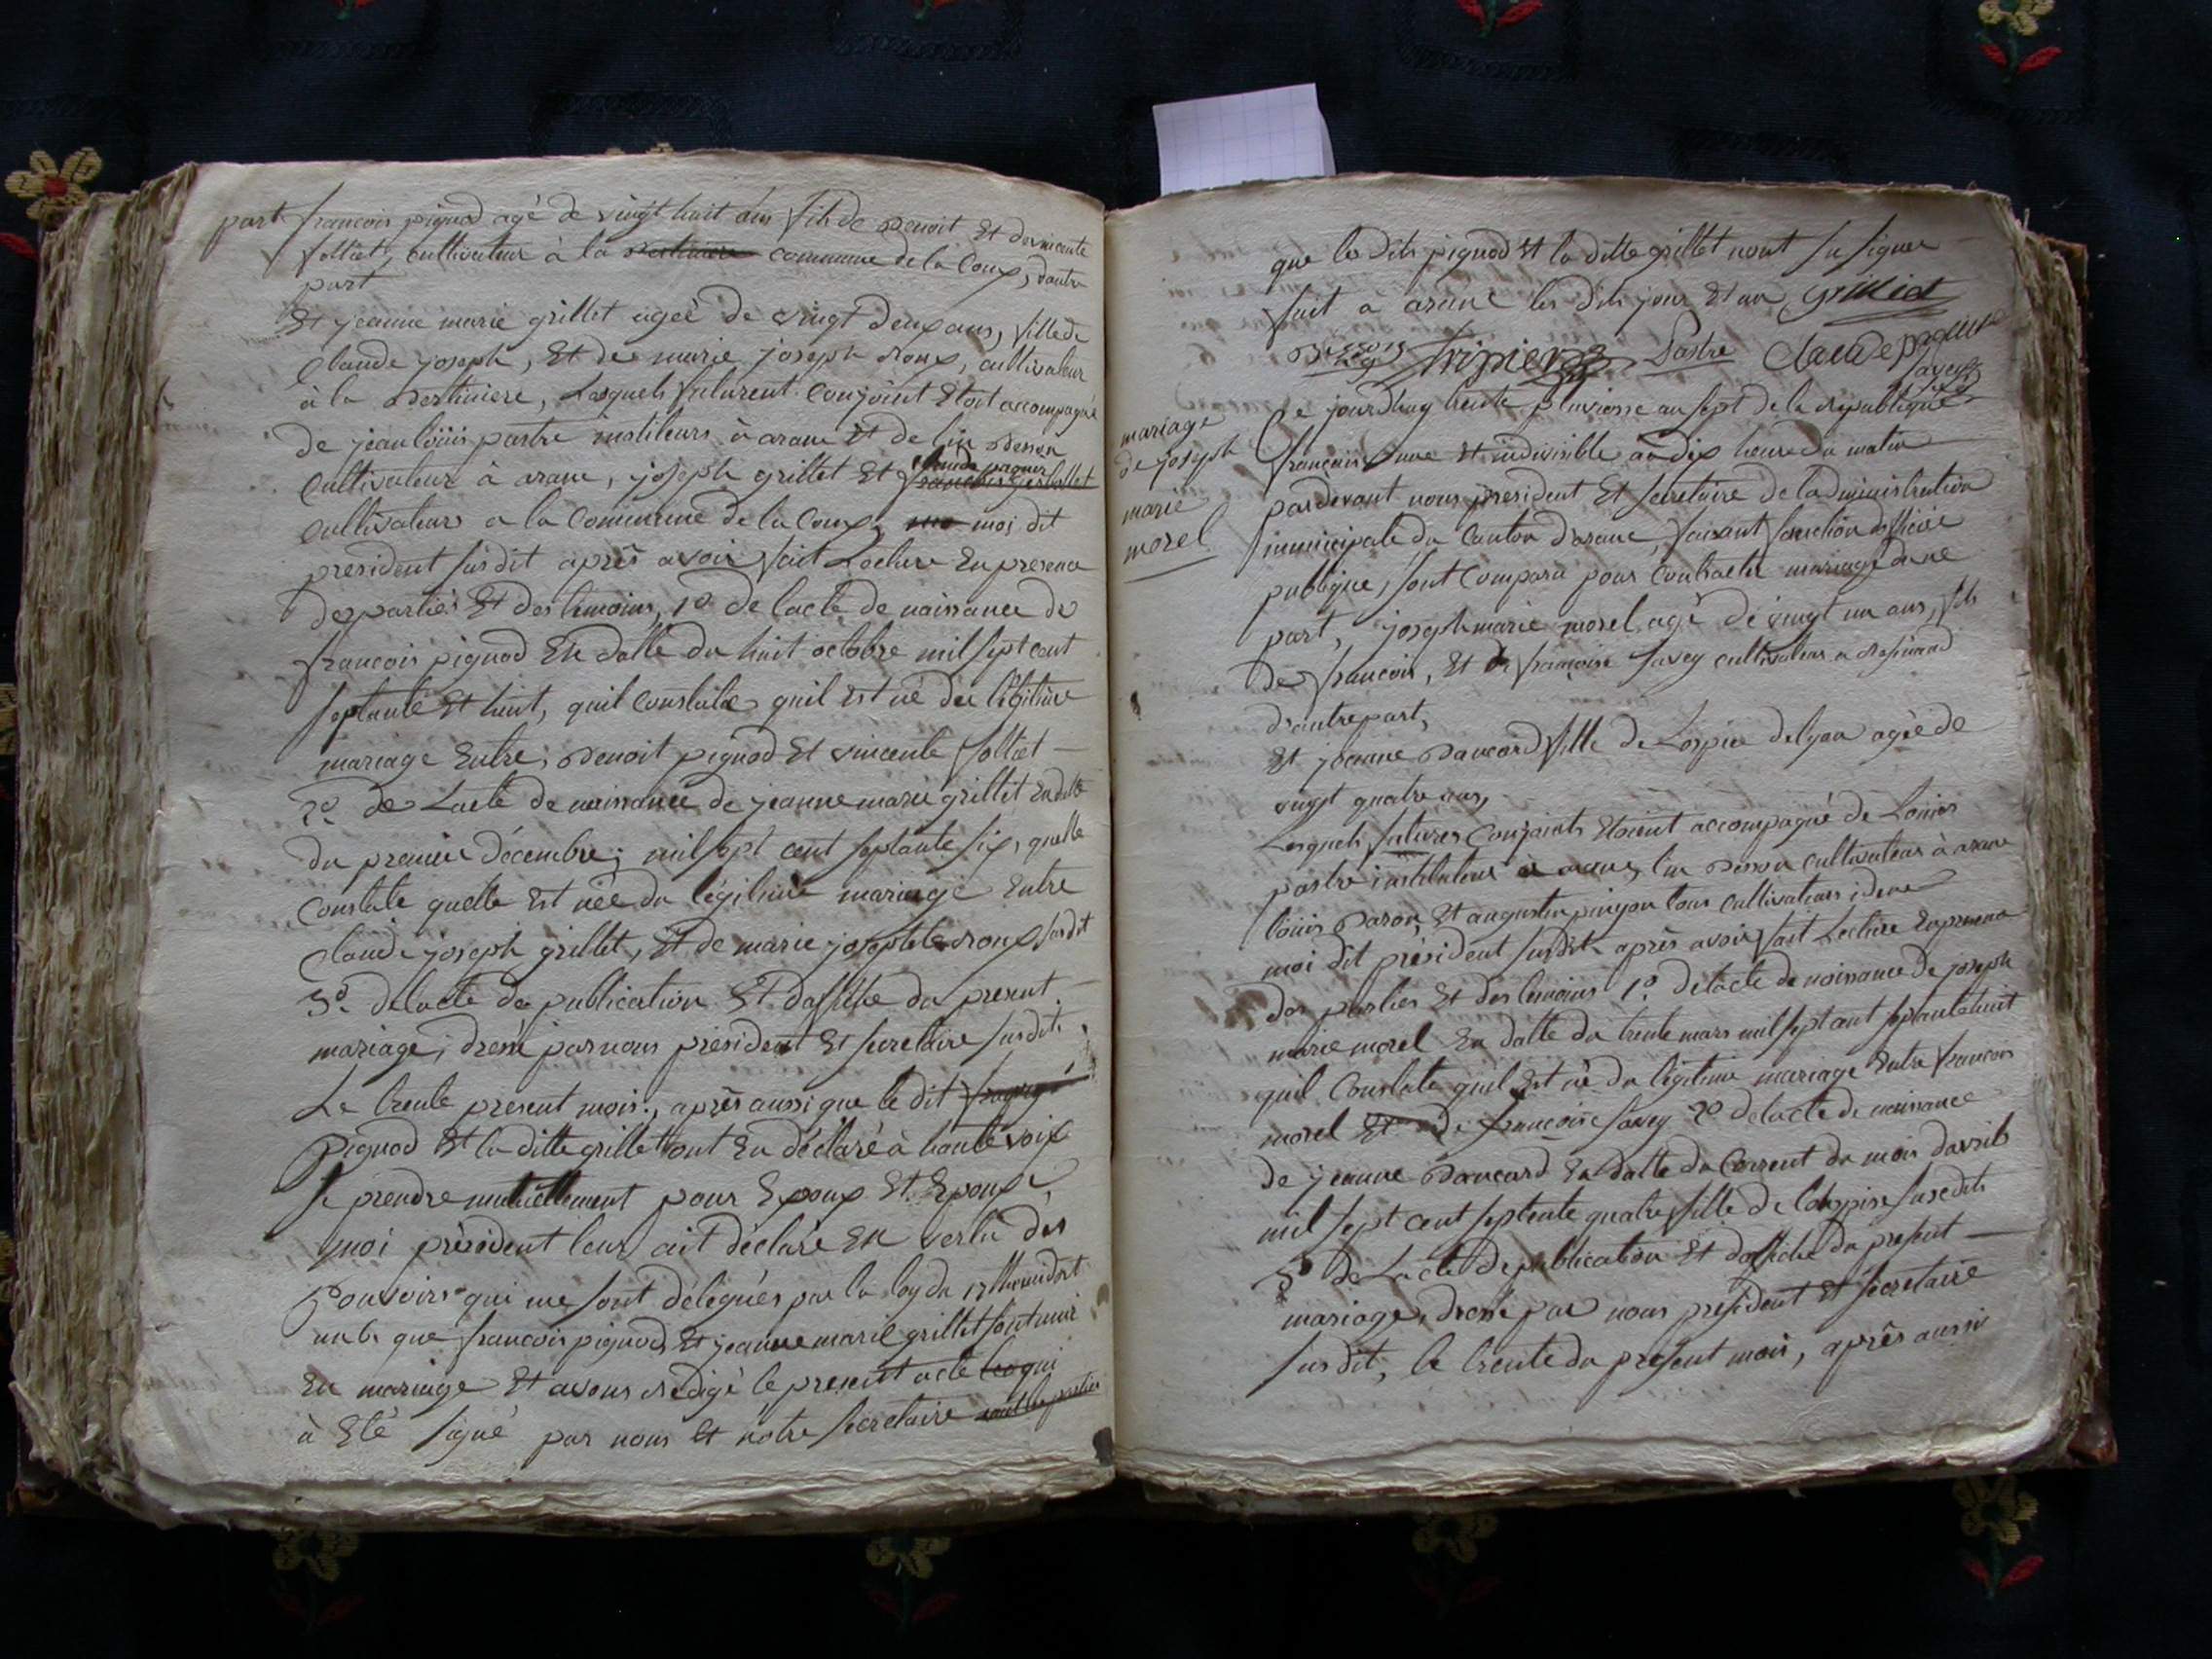 part francois pignod agé de vingt huit ans fils de Benoit Et de vincente
folliet, cultivateur à la commune de la Coux, dautre
part
Et jeanne marie grillet ageé de vingt deux ans, fille de
Claude joseph, Et de marie joseph roux, cultivateur
à la Bertiniere, Lesquels futurent conjoint Etoit accompagné
de jean loüis pastre instileurs à arane Et de lin Besson
claude paquer
Cultivateur à arane, joseph grillet Et
cultivateurs a la Commune de la Coux, moi dit
president susdit après avoir fait Lecture En presence
des parties Et des temoins, 1º de lacte de naissance de
francois pignod En datte du huit octobre mil sept cent
septante Et huit, quil constate quil est né du légitime
mariage Entre, Benoit pignod Et vincente folliet
2º de Lacte de naissance de jeanne marie grillet En datte
du premier décembre, mil sept cent septante six, quelle
Constate quelle Est née du légitime mariage Entre
Claude joseph grillet, Et de marie josephte roux susdit
3º de lacte de publication Et daffiche du present
mariage, dressé par nous président Et secretaire susdit.
Le trente present mois, après aussi que le dit
Pignod Et la ditte grillet ont En déclaré à haute voix
se prendre mutuellement pour Epoux Et Epouse,
moi président leur ait déclaré En vertu des
Pouvoirs qui me sont délegués par la loy du 13
an 6 que francois pignod Et jeanne marie grillet sont unit
En mariage Et avons redigé le present acte qui
à Eté signé par nous Et notre secretaire
que les dits pignod Et la ditte grillet nont su signer
fait a arane les dits jour Et an grillet
Besson Pastre claude paquer
savey
mariage
de joseph
marie
morel
Ce jourdhuy trente pluviosse an sept de la république
francaise une Et indivisible à dix heure du matin
pardevant nous president Et secretaire de ladministration
municipale du Canton darane, faisant fonction dofficier
publique, sont comparu pour Contracter mariage dune
part, joseph marie morel, agé de vingt un ans, fils
de francois, Et de francoise savey cultivateur a
dautre part,
Et jeanne Bancard fille de Lospice de lyon agée de
vingt quatre ans,
Lesquels futures Conjoints Etoient accompagné de Louis
pastre instituteur a arane, lin Besson cultivateur à arane
loüis Baron, Et augustin pinjon tous cultivateurs idem
moi dit président susdit après avoir fait Lecture En presence
des parties Et des temoins 1º de lacte de naissance de joseph
marie morel En datte du trente mars mil sept cent septante huit
quil Constate quil Est né du légitime mariage Entre francois
morel Et de francoise savey 2º de lacte de naissance
de jeanne Bancard En datte du Corrent du mois davril
mil sept cent septente quatre fille de lospise susedits
3º de Lacte de publication Et daffiche du present
mariage, dressé par nous president Et secretaire
susdit, le trente du present mois, après aussi